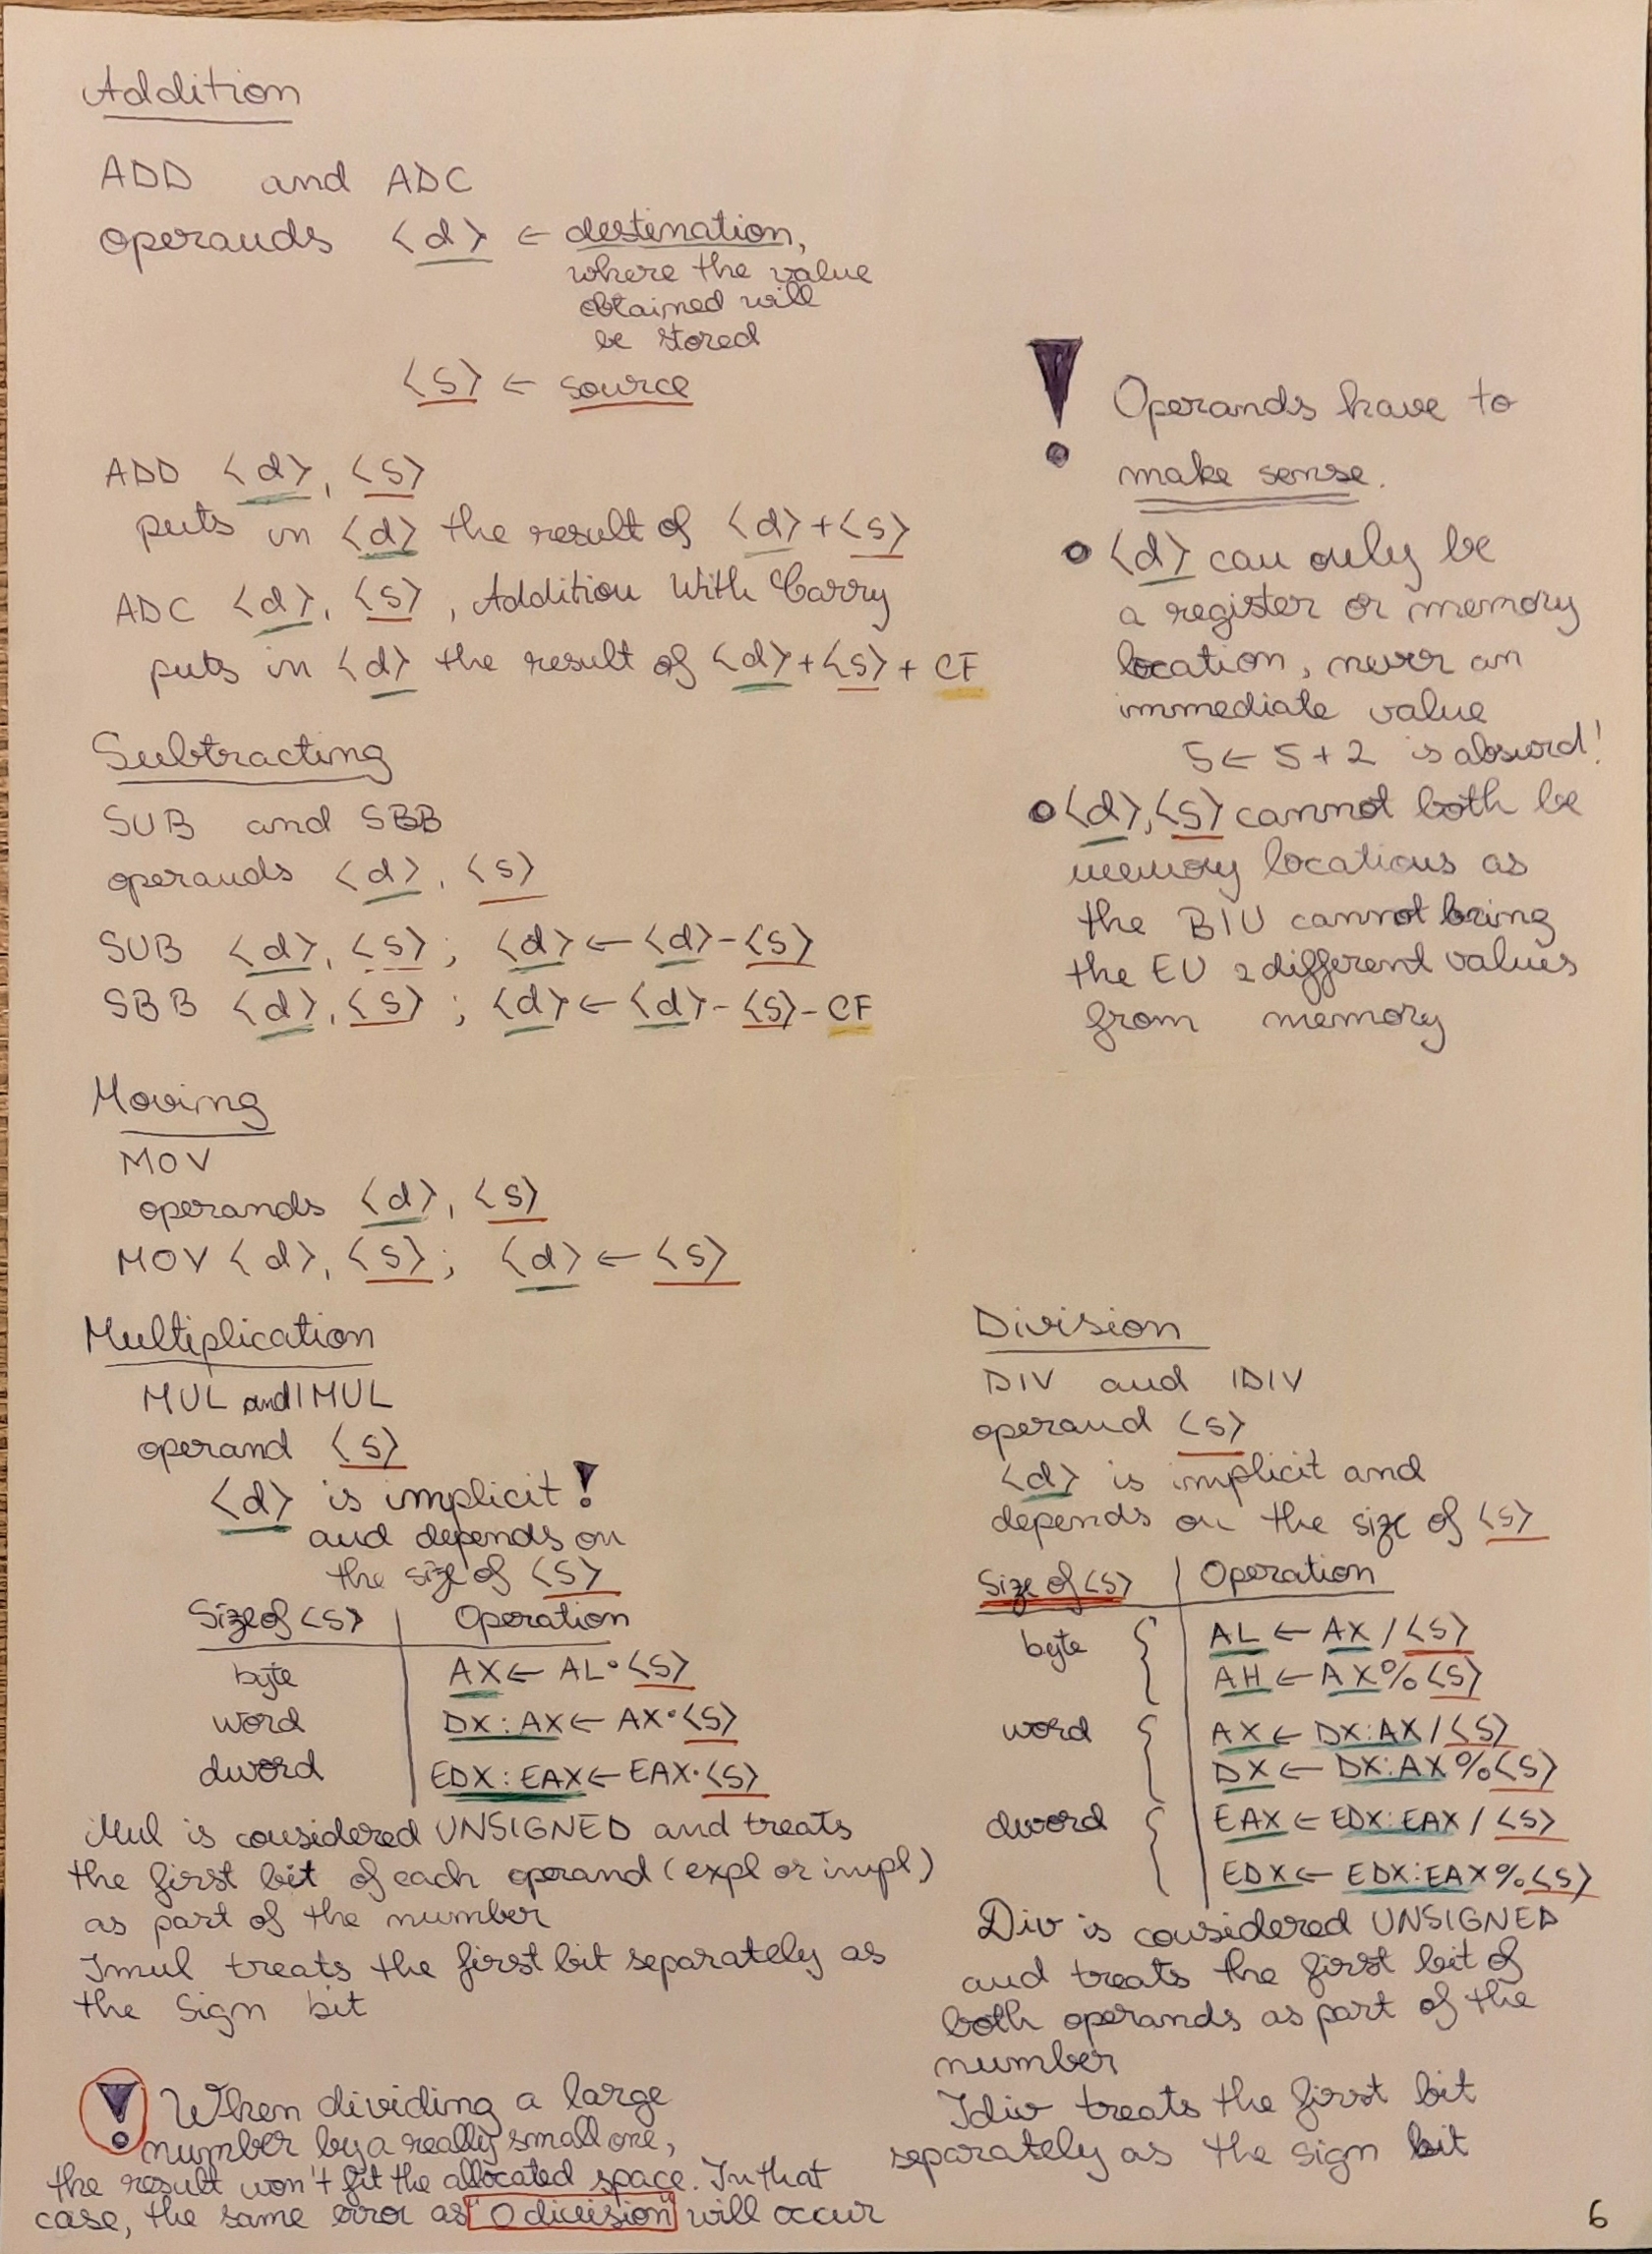 Addition
ADD and ADC
operands <d> ← destenation,
where the value
obtained will
be stored
<s> ← source
ADD <d>, <s>
puts in <d> the result of <d>+<s>
ADC <d>, <s>, Addition With Carry
puts in <d> the result of <d>+<s>+ CF
Subtracting
SUB and SBB
operands <d>, <s>
SUB <d>, <s>; <d>←<d>-<s>
SBB <d>, <s>; <d>←<d>-<s>-CF
Moving
MOV
operands <d>, <s>
MOV <d>, <s>; <d>←<s>
! Operands have to
make sense.
o <d> can only be
a register or memory
location, never an
immediate value
5← 5+2 is absurd!
o <d>,<s> cannot both be
memory locations as
the BIU cannot bring
the EU 2 different values
from memory
Multiplication
MUL and IMUL
operand <s>
<d> is implicit!
and depends on
the size of <s>
Size of <s> | Operation
byte AX← AL·<s>
word DX:AX← AX·<s>
dword EDX:EAX←EAX·<s>
Mul is considered UNSIGNED and treats
the first bit of each operand (expl or impl)
as part of the number
Imul treats the first bit separately as
the Sign bit
! When dividing a large
number by a really small one,
the result won't fit the allocated space. In that
case, the same error as "0 division" will occur
Division
DIV and IDIV
operand <s>
<d> is implicit and
depends on the size of <s>
Size of <s> | Operation
byte { AL ← AX /<s>
AH ← AX%<s>
word { AX ← DX:AX /<s>
DX ← DX:AX %<s>
dword { EAX ← EDX:EAX / <s>
EDX← EDX:EAX %<s>
Div is considered UNSIGNED
and treats the first bit of
both operands as part of the
number
Idiv treats the first bit
separately as the sign bit
6